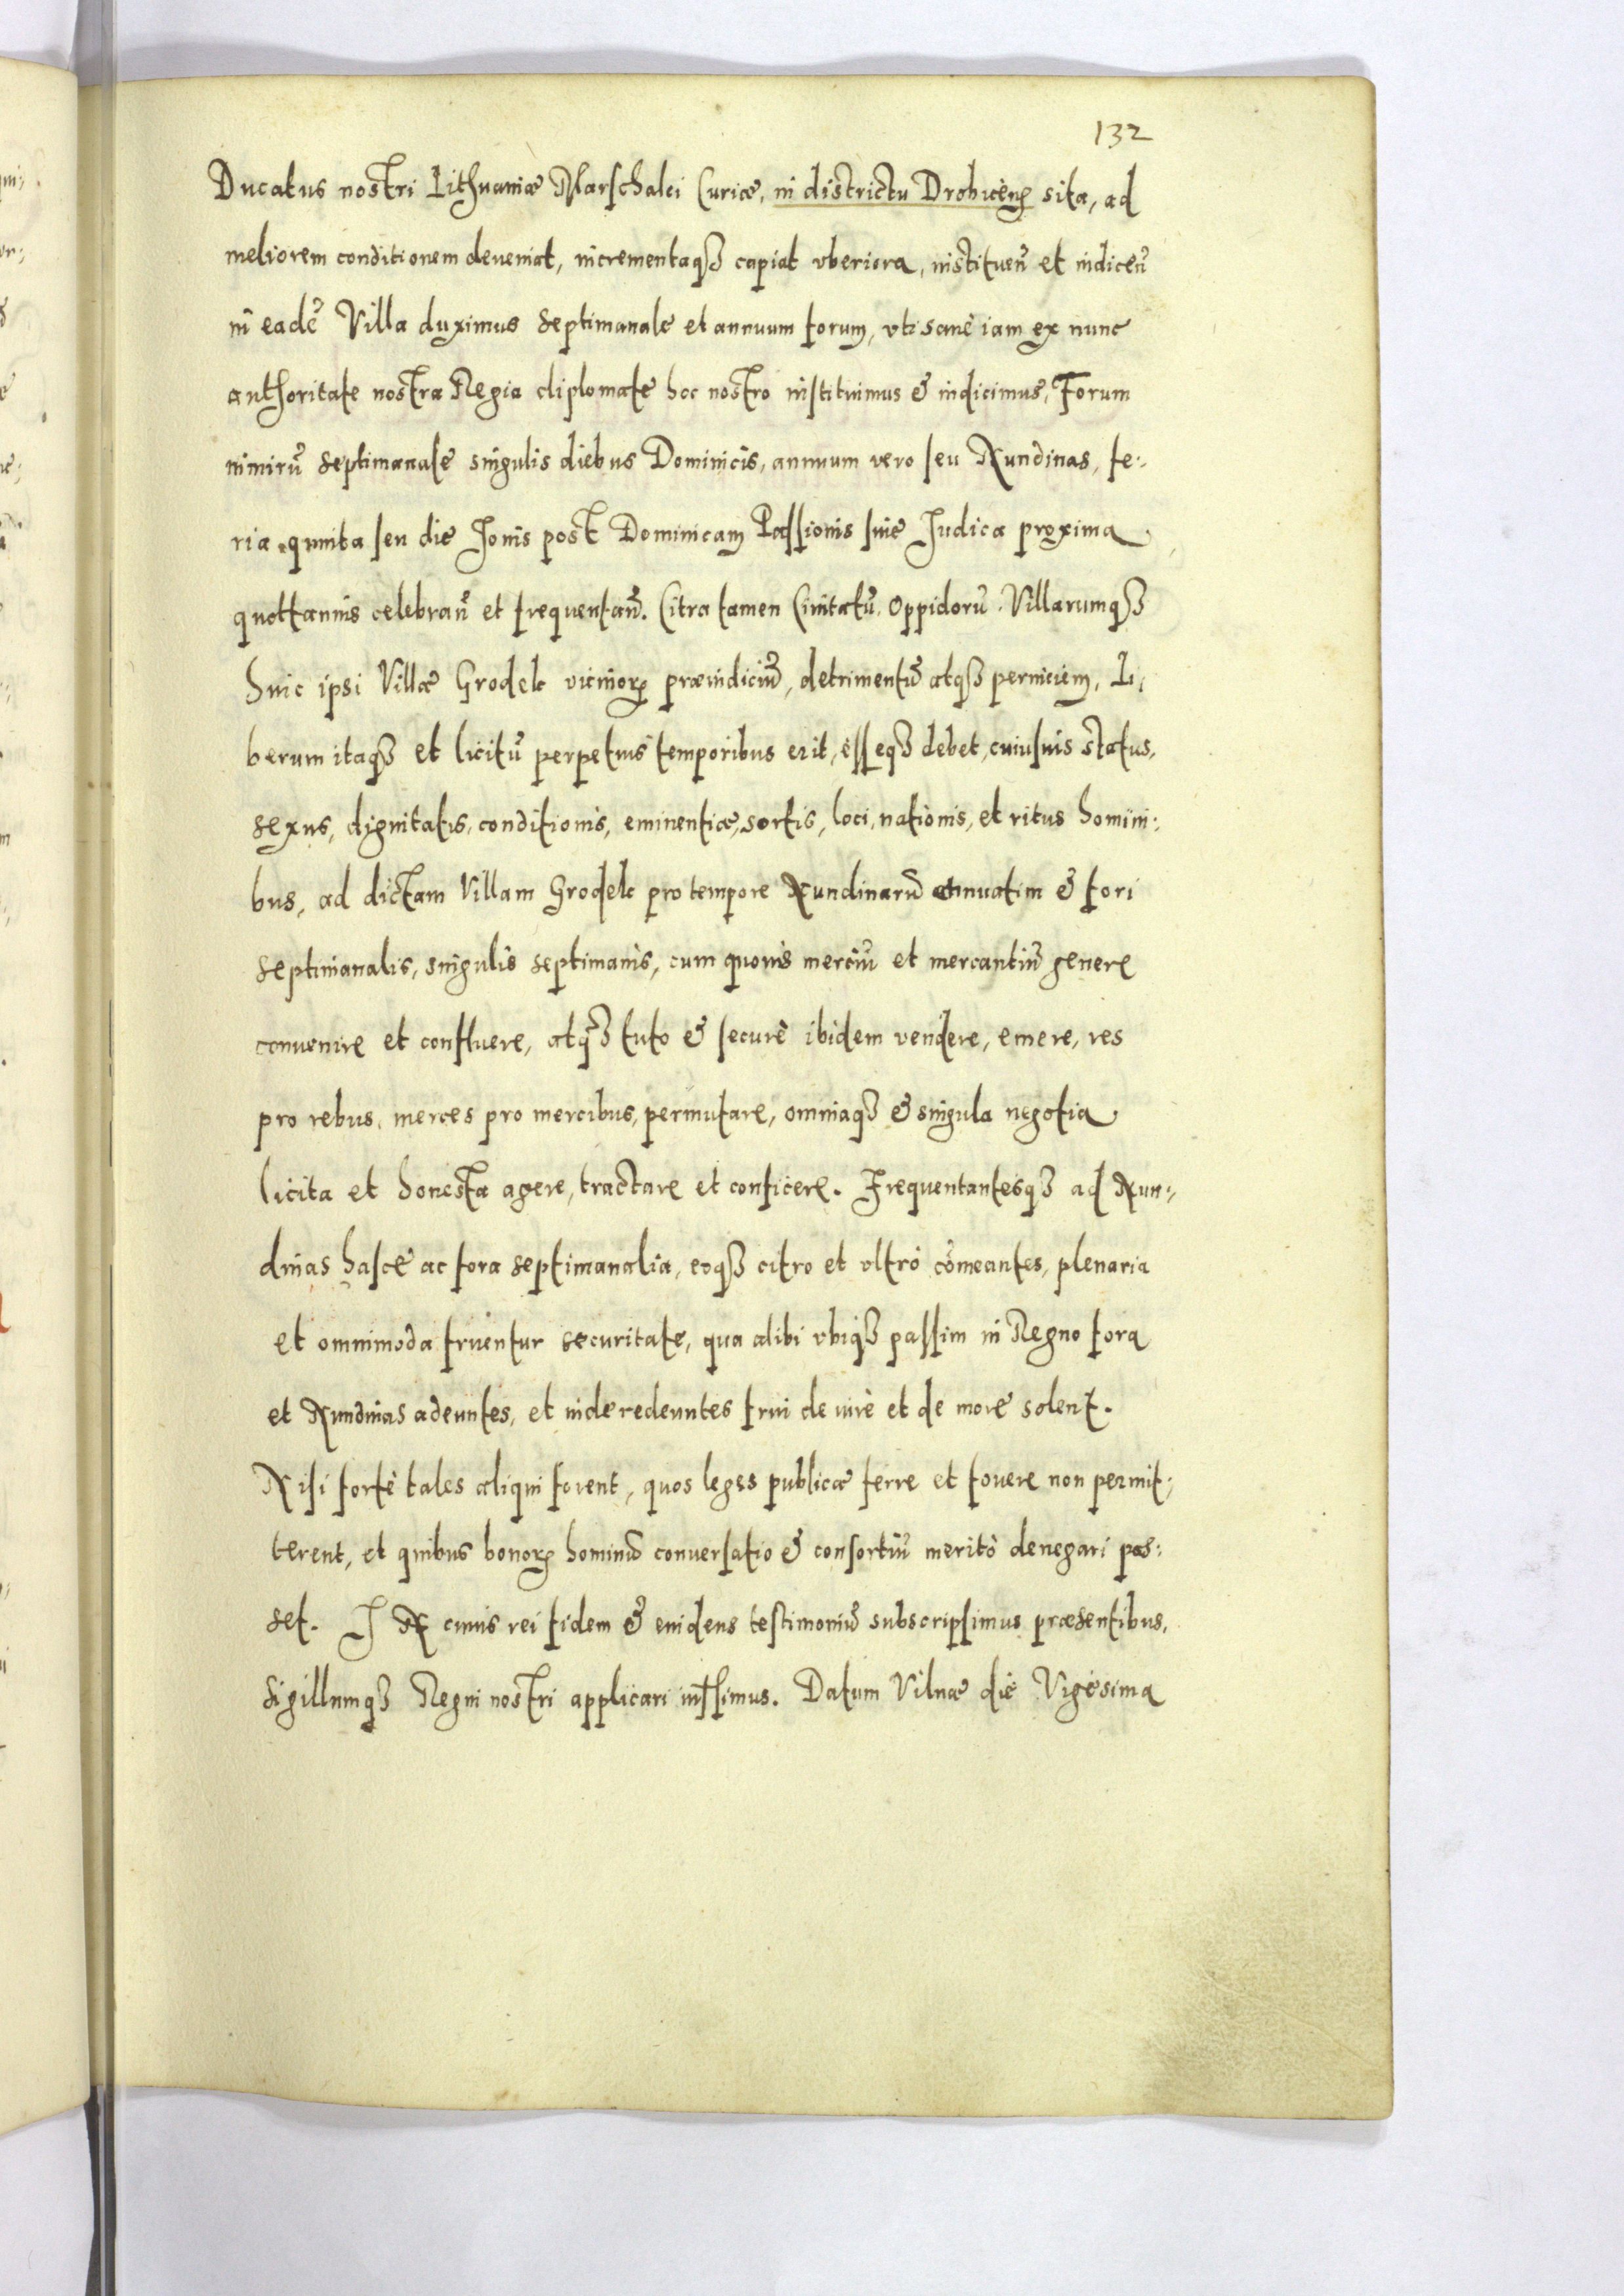 132
Ducatus nostri Lithuaniæ Marschalci Curiæ, in districtu Drohicen̄ sita, ad
meliorem conditionem deueniat, incrementaqꝫ capiat vberiora, instituen̄ et indicen̄
in eadē Villa duximus septimanale et annuum forum, vti sanè iam ex nunc
authoritate nostra Regia diplomate hoc nostro instituimus & indicimus, Forum
nimirū septimanale singulis diebus Dominicis, annuum vero seu Nundinas, fe:
ria quinta seu die Jouis post Dominicam Passionis siue Judica proxima
quottannis celebran̄ et frequentan̄. Citra tamen Ciuitatū, Oppidorū Villarumqꝫ
huic ipsi Villæ Grodek vicinorꝝ præiudiciū, detrimentū atqꝫ perniciem, Li,
berum itaqꝫ et licitū perpetuis temporibus erit, esseqꝫ debet, cuiusuis status,
sexus, dignitatis, conditionis, eminentiæ, sortis, loci, nationis, et ritus homini:
bus, ad dictam Villam Grodek pro tempore Nundinarū annuatim & fori
septimanalis, singulis septimanis, cum quouis merciū et mercantiū genere
conuenire et confluere, atqꝫ tuto & securè ibidem vendere, emere, res
pro rebus, merces pro mercibus, permutare, omniaqꝫ & singula negotia
licita et honesta agere, tractare et conficere. Frequentantesqꝫ ad Nun:
dinas hasce ac fora septimanalia, eoqꝫ citro et vltrò cōmeantes, plenaria
et omnimoda fruentur securitate, qua alibi vbiqꝫ passim in Regno fora
et Nundinas adeuntes, et inde redeuntes frui de iure et de more solent.
Nisi fortè tales aliqui forent, quos leges publicæ ferre et fouere non permit:
terent, et quibus bonorꝝ hominū conuersatio & consortiū meritò denegari pos:
set. IN cuius rei fidem & euidens testimoniū subscripsimus præsentibus,
Sigillumqꝫ Regni nostri applicari iussimus. Datum Vilnæ die Vigesima